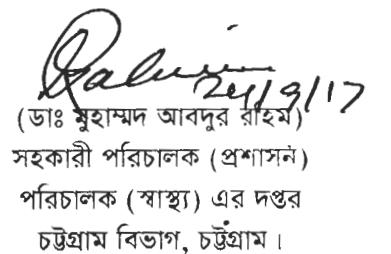 (ডাঃ মুহাম্মদ আবদুর রাহিম)
সহকারী পরিচালক (প্রশাসন)
পরিচালক (স্বাস্থ্য) এর দপ্তর
চট্টগ্রাম বিভাগ, চট্টগ্রাম।